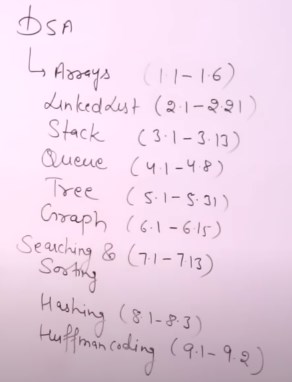 DSA
↳ Arrays (1.1-1.6)
Linked List (2.1-2.21)
Stack (3.1-3.13)
Queue (4.1-4.8)
Tree (5.1-5.31)
Graph (6.1-6.15)
Searching & (7.1-7.13)
Sorting
Hashing (8.1-8.3)
Huffman coding (9.1-9.2)